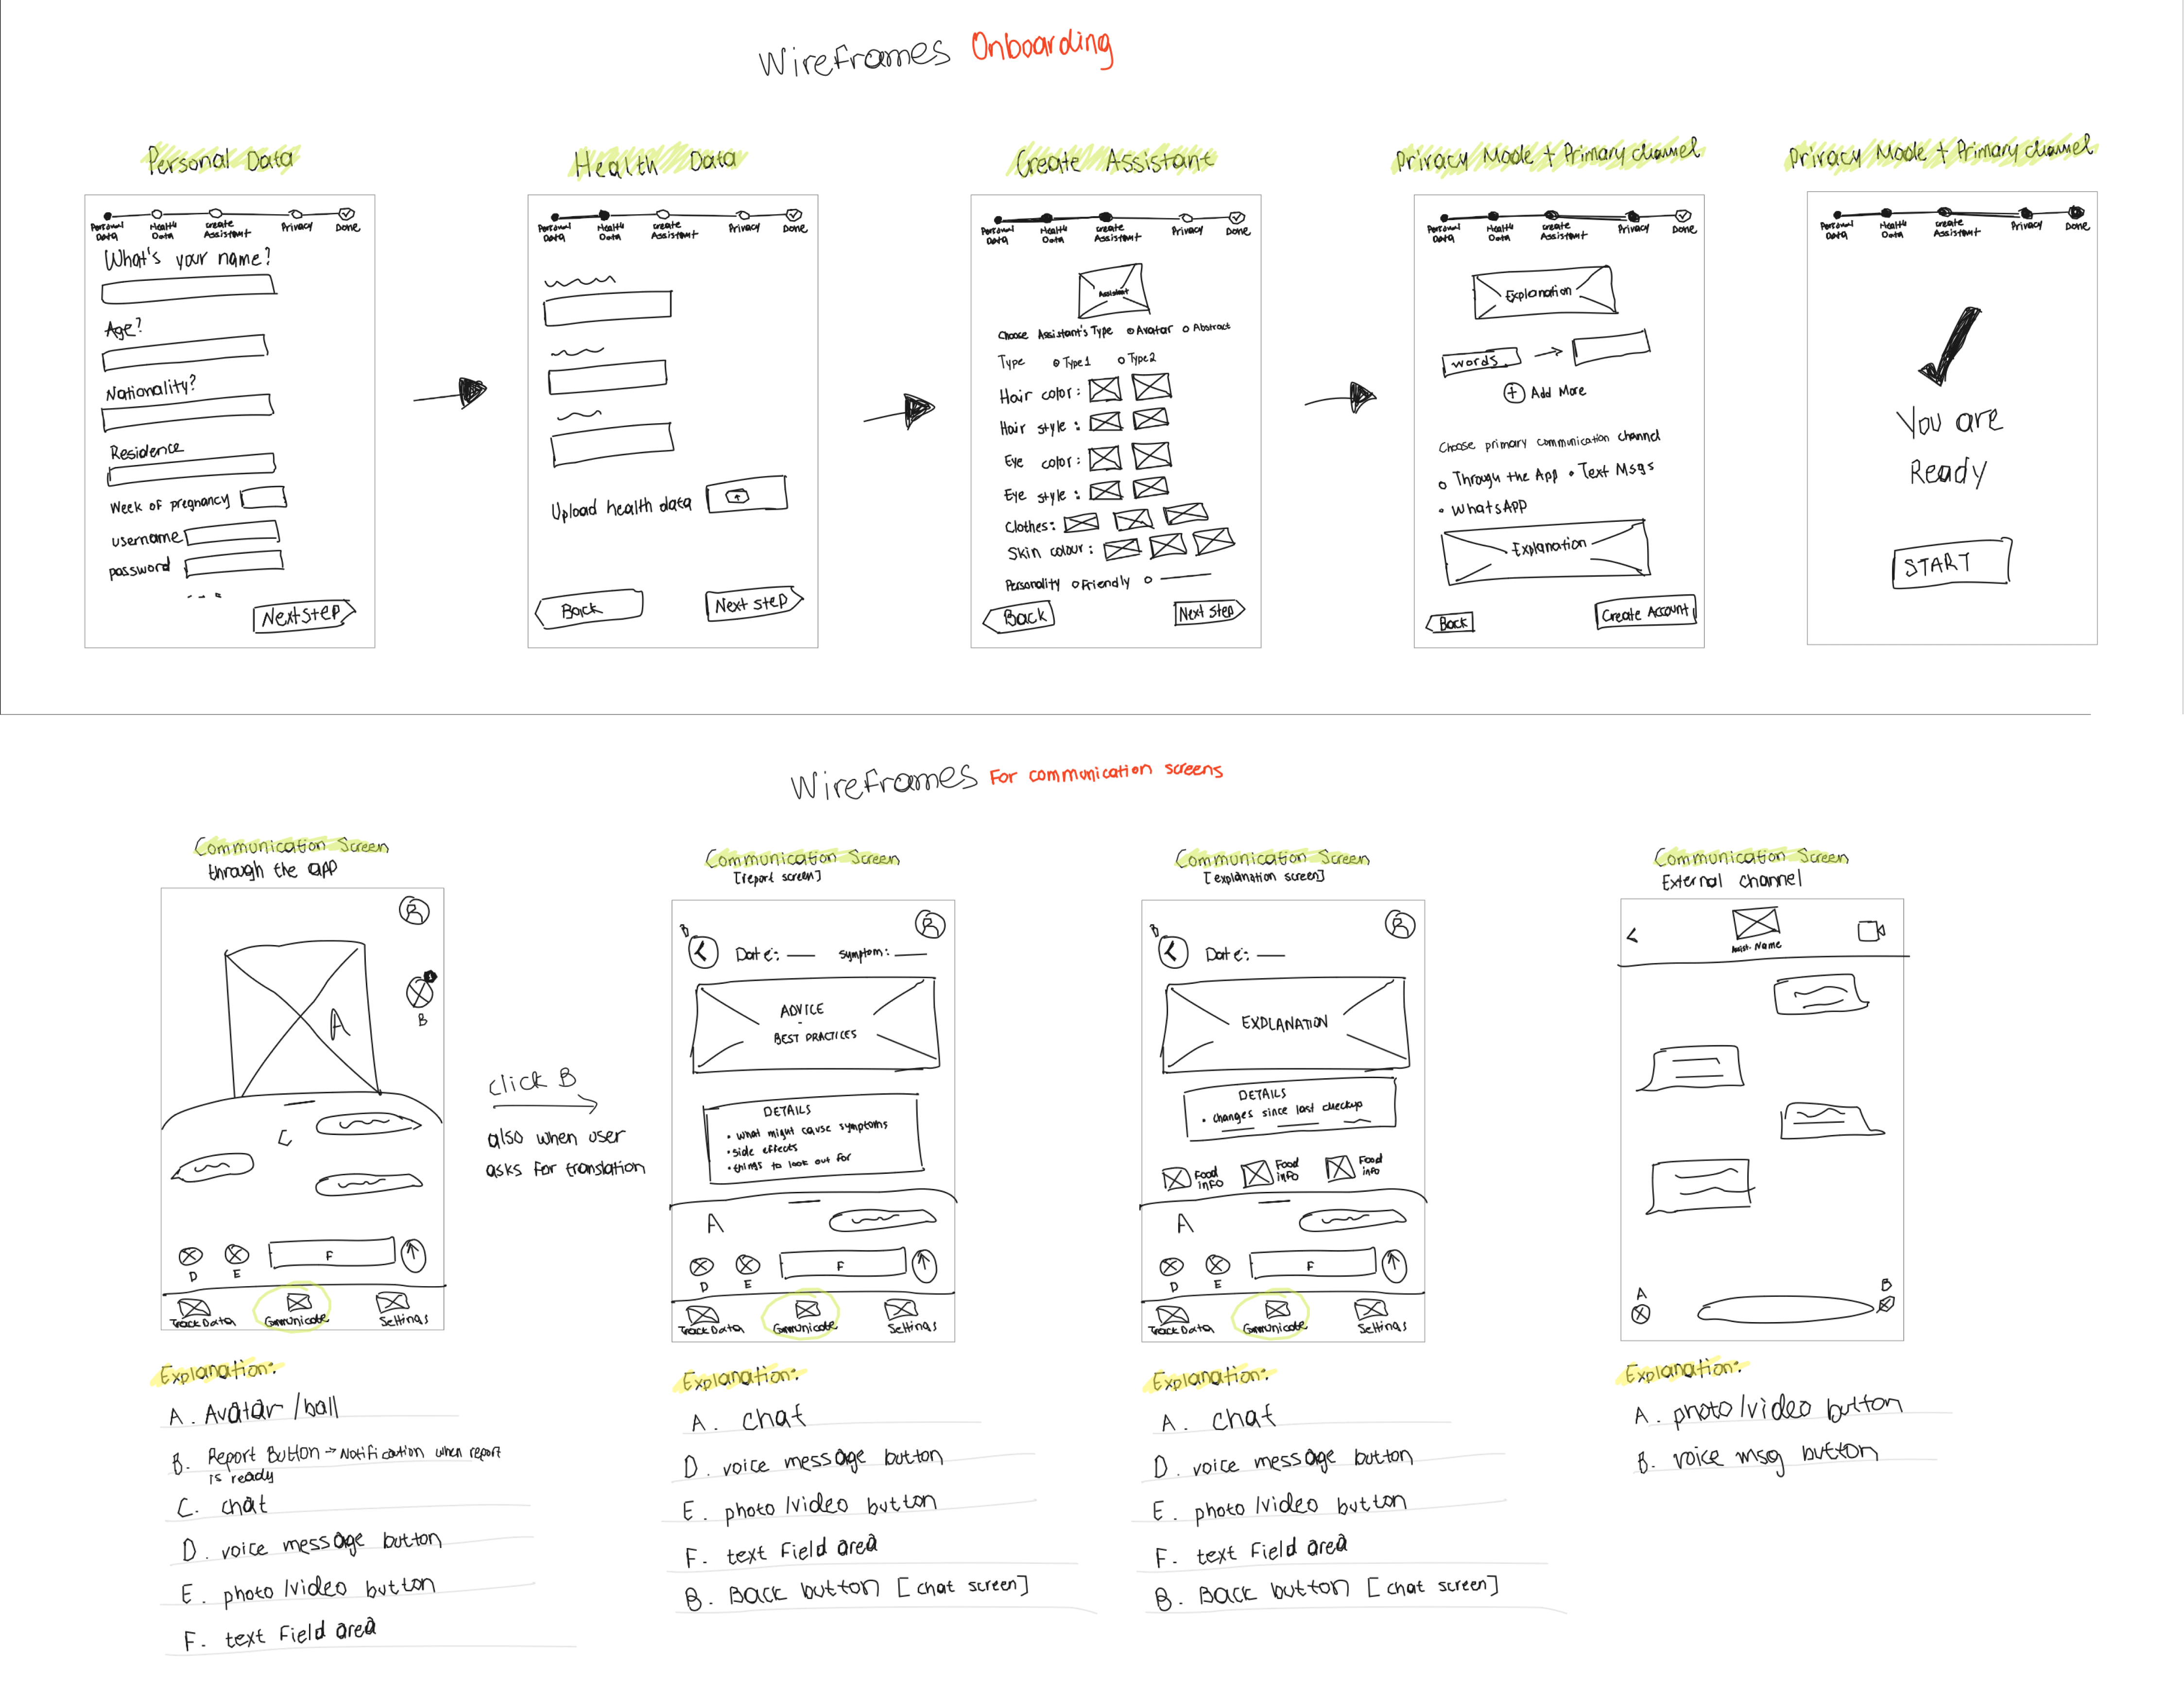 Wireframes Onboarding
Personal Data
Personal Data
Health Data
Create Assistant
Privacy
Done
What's your name?
Age?
Nationality?
Residence
Week of pregnancy
username
password
...
Next step
Health Data
Personal Data
Health Data
Create Assistant
Privacy
Done
Upload health data
Back
Next step
Create Assistant
Personal Data
Health Data
Create Assistant
Privacy
Done
Assistant
Choose Assistant's Type Avatar Abstract
Type Type 1 Type 2
Hair color:
Hair style:
Eye color:
Eye style:
Clothes:
Skin colour:
Personality Friendly
Back
Next Step
Privacy Mode + Primary channel
Personal Data
Health Data
Create Assistant
Privacy
Done
Explanation
words
+ Add More
Choose primary communication channel
Through the App Text Msgs
WhatsAPP
Explanation
Back
Create Account
Privacy Mode + Primary channel
Personal Data
Health Data
Create Assistant
Privacy
Done
You are
Ready
START
Wireframes For communication screens
Communication Screen
through the app
A
B
C
D
E
F
Track Data
Communicate
Settings
Explanation:
A. Avatar /ball
B. Report Button → Notification when report
is ready
C. chat
D. voice message button
E. photo/video button
F. text Field area
click B
also when user
asks for translation
Communication Screen
[report screen]
B
Date: symptom:
ADVICE
-
BEST PRACTICES
DETAILS
• what might cause symptoms
• side effects
• things to look out for
A
D
E
F
Track Data
Communicate
Settings
Explanation:
A. chat
D. voice message button
E. photo/video button
F. text Field area
B. Back button [chat screen]
Communication Screen
[explanation screen]
B
Date:
EXPLANATION
DETAILS
• changes since last checkup
Food info
Food info
Food info
A
D
E
F
Track Data
Communicate
Settings
Explanation:
A. chat
D. voice message button
E. photo/video button
F. text Field area
B. Back button [chat screen]
Communication Screen
External channel
Assist. Name
A
B
Explanation:
A. photo/video button
B. voice msg button